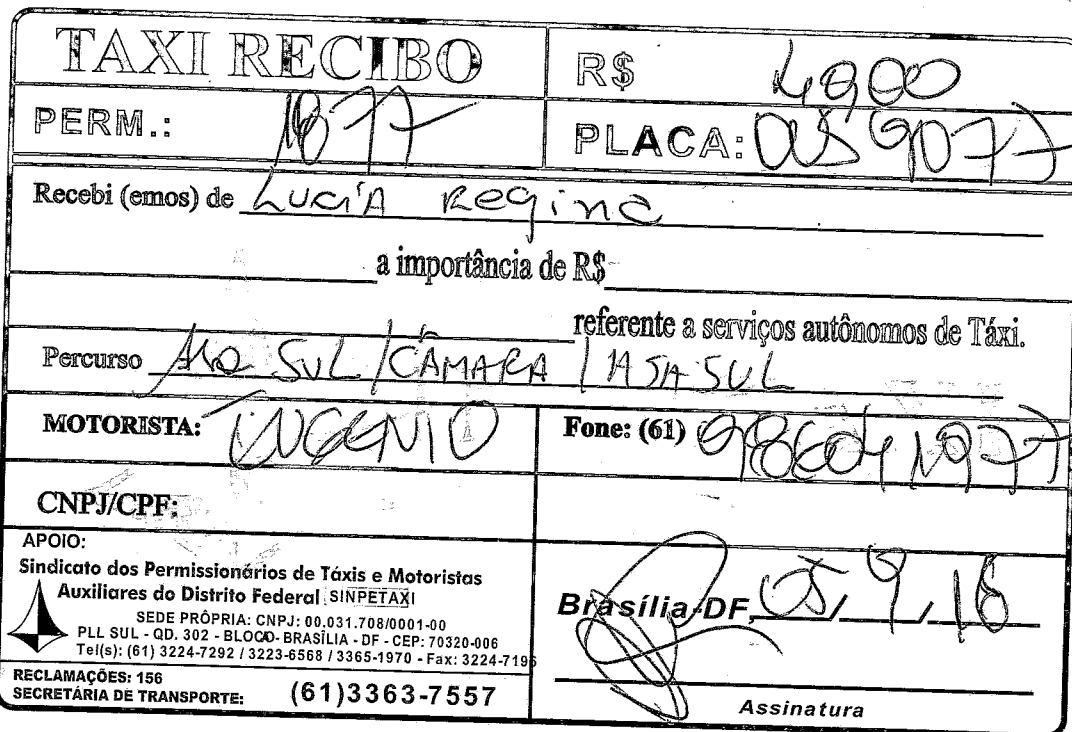 TAXI RECIBO
R$ 4900
PERM.: 1877
PLACA:
Recebi (emos) de Lucia Regina
a importância de R$
referente a serviços autônomos de Táxi.
Percurso SUL / CÂMARA / ASA SUL
MOTORISTA: EUGENIO
Fone: (61)
CNPJ/CPF:
APOIO:
Sindicato dos Permissionários de Táxis e Motoristas
Auxiliares do Distrito Federal SINPETAXI
SEDE PRÓPRIA: CNPJ: 00.031.708/0001-00
PLL SUL - QD. 302 - BLOCO - BRASÍLIA - DF - CEP: 70320-006
Tel(s): (61) 3224-7292 / 3223-6568 / 3365-1970 - Fax: 3224-7196
RECLAMAÇÕES: 156
SECRETÁRIA DE TRANSPORTE: (61)3363-7557
Brasília-DF, 05/9/16
Assinatura